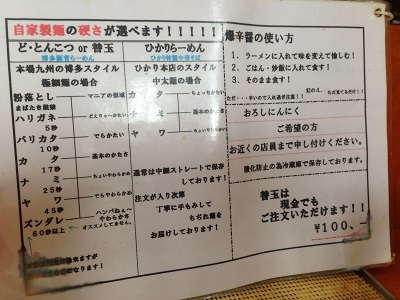 自家製麺の硬さが選べます！！！！！
ど・とんこつ or 替玉
博多豚骨らーめん
本場九州の博多スタイル
極細麺の場合
粉落とし マニアの領域
まばたき厳禁
ハリガネ
5秒
バリカタ でらかたい
10秒
カタ 基本のかたさ
17秒
ナミ ちょいやわらかめ
25秒
ヤワ でらやわらかめ
45秒
ズンダレ ハンパねぇ〜やわらかさ
60秒以上 オススメしてません。
ひかりらーめん
ひかり特製中華そば
ひかり本店のスタイル
中太麺の場合
カタ ちょっちかたい
ナミ 基本のかたさ
ヤワ ちょいやわらかい
通常は中細ストレートで保存
しております！
注文が入り次第
丁寧に手もみして
ちぢれ麺を
お届けしております！
爆辛醤の使い方
1．ラーメンに入れて味を変えて愉しむ！
2．ごはん・炒飯に入れて食す！
3．そのまま食す！
おろしにんにく
ご希望の方
お近くの店員まで申し付けください。
酸化防止の為冷蔵庫で保存しております。
替玉は
現金でも
ご注文いただけます！！
¥100、